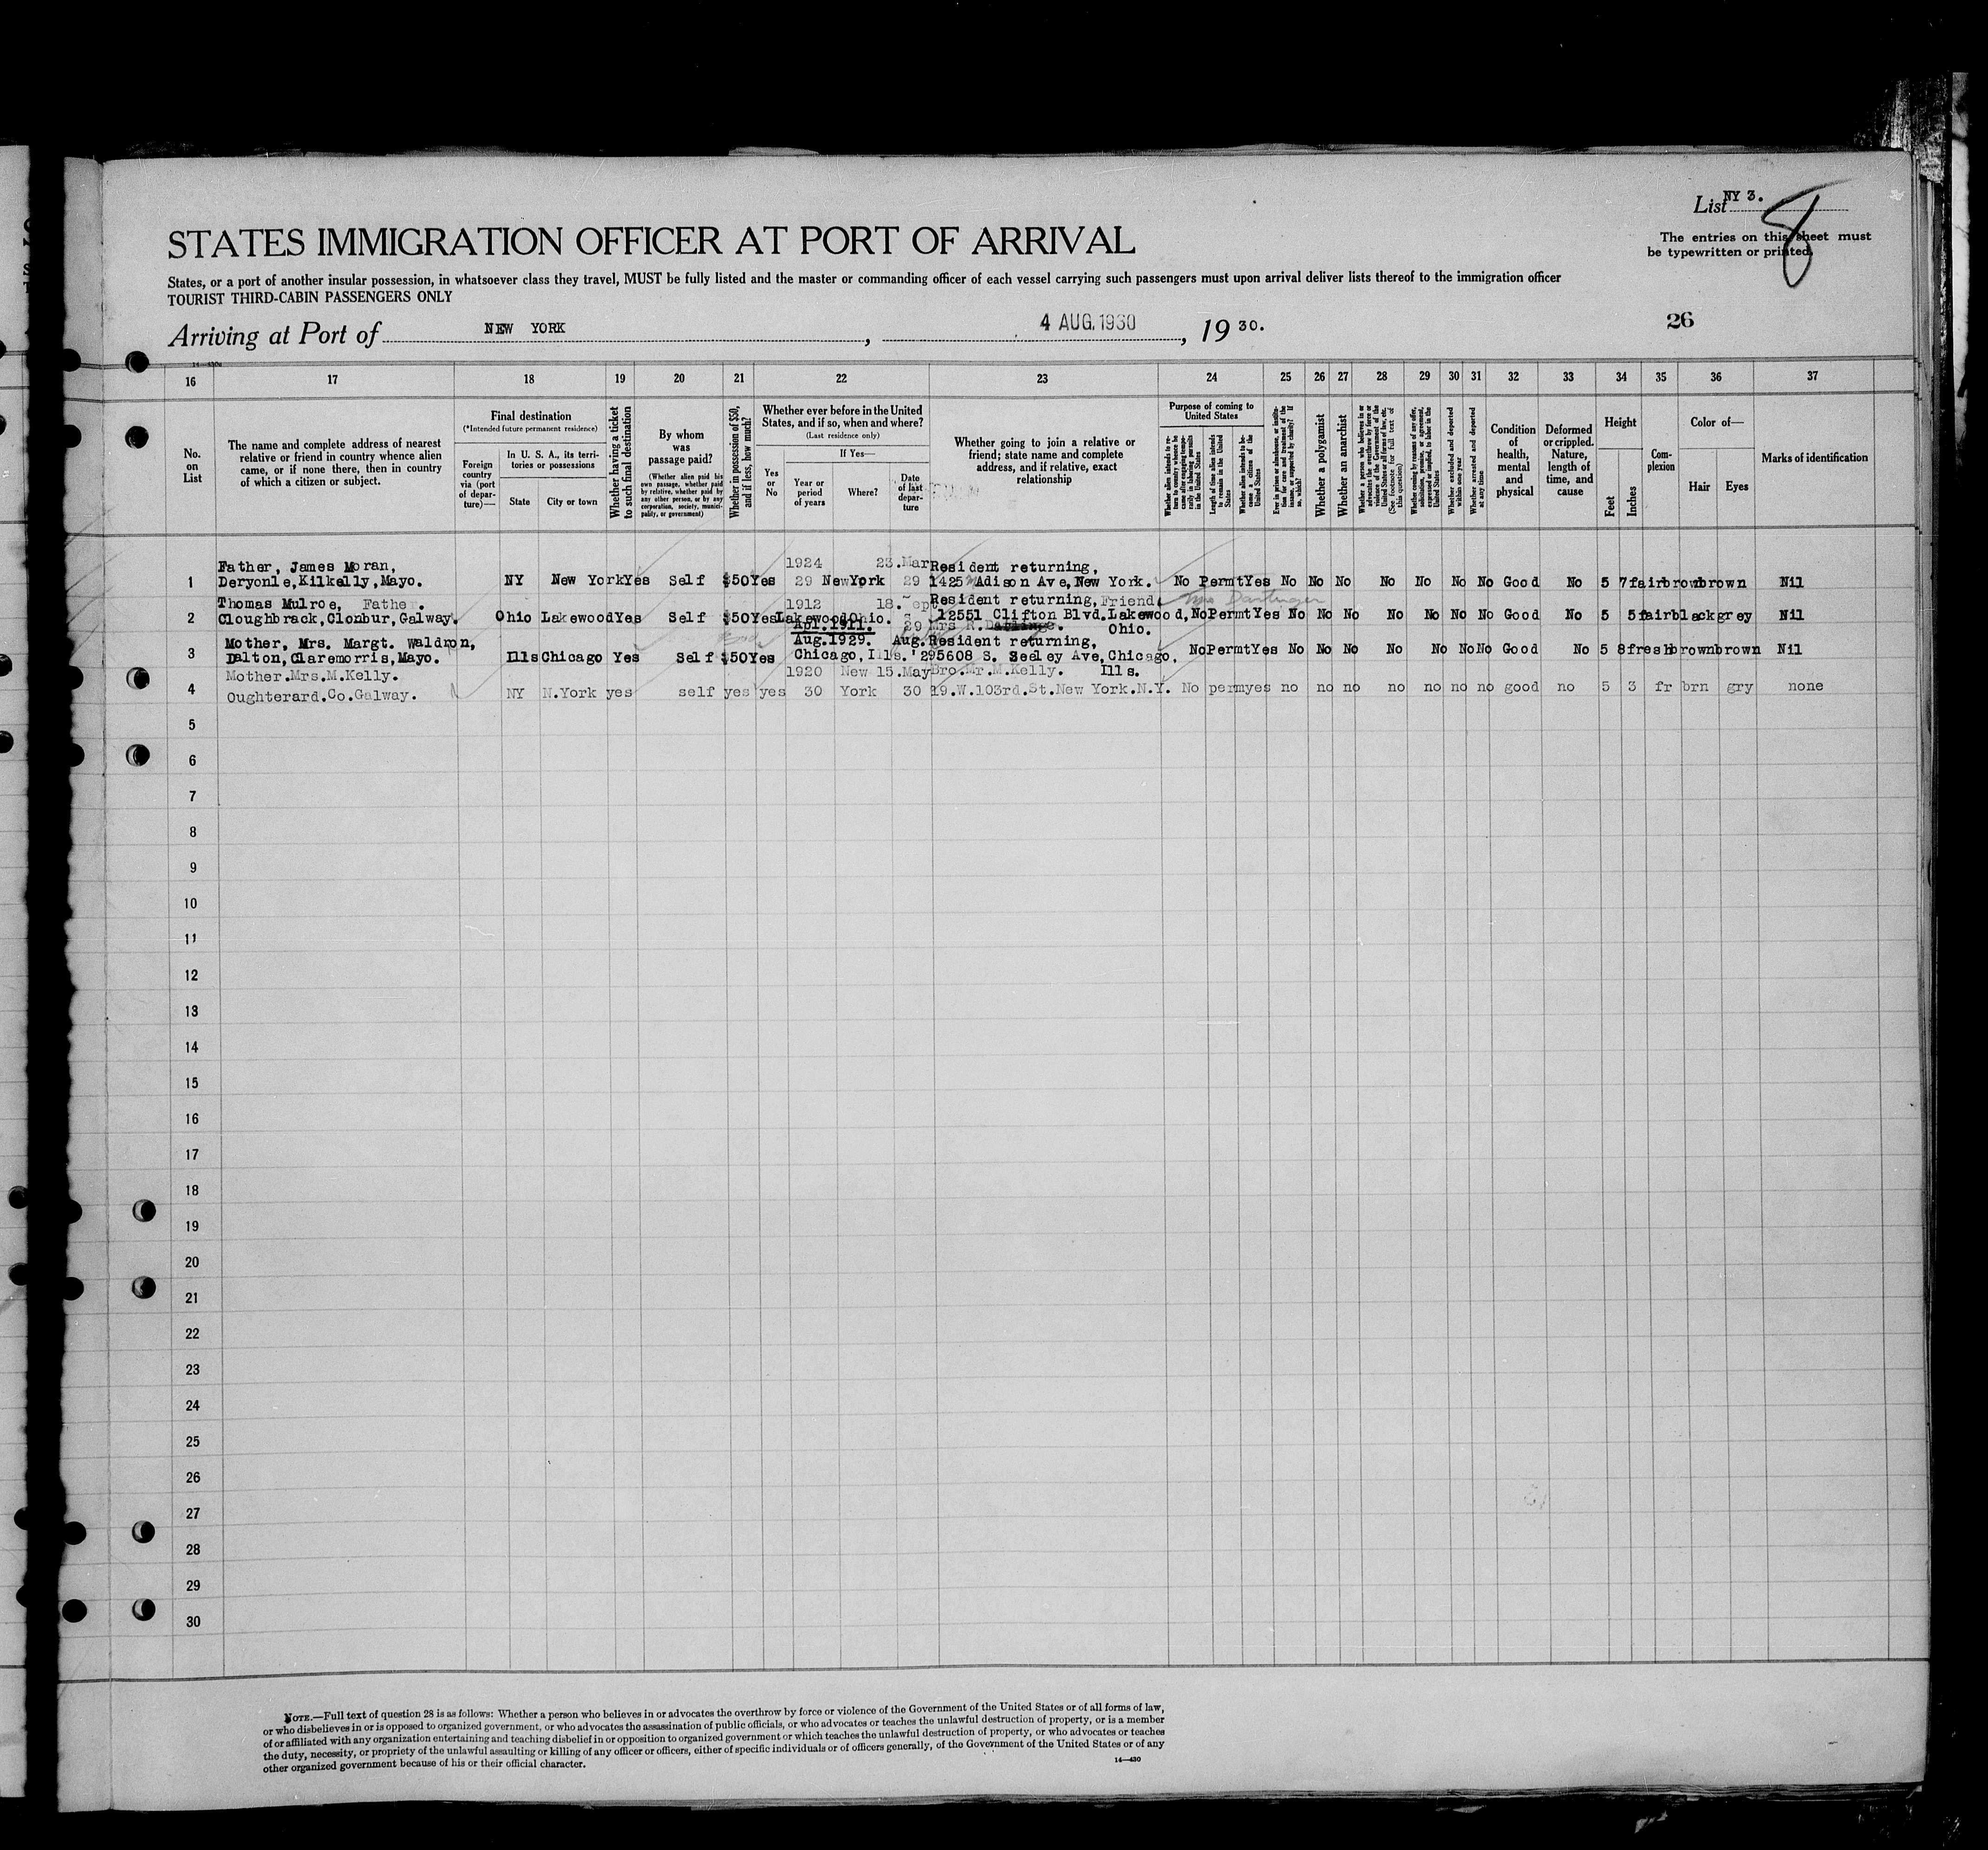 List NY 3.
8
The entries on this sheet must
be typewritten or printed.
STATES IMMIGRATION OFFICER AT PORT OF ARRIVAL
States, or a port of another insular possession, in whatsoever class they travel, MUST be fully listed and the master or commanding officer of each vessel carrying such passengers must upon arrival deliver lists thereof to the immigration officer
TOURIST THIRD-CABIN PASSENGERS ONLY
Arriving at Port of NEW YORK, 4 AUG. 1930, 19 30.
26
16 17 18 19 20 21 22 23 24 25 26 27 28 29 30 31 32 33 34 35 36 37
No.
on
List
The name and complete address of nearest
relative or friend in country whence alien
came, or if none there, then in country
of which a citizen or subject.
Final destination
(*Intended future permanent residence)
Foreign
country
via (port
of depar-
ture)—
In U. S. A., its terri-
tories or possessions
State
City or town
Whether having a ticket
to such final destination
By whom
was
passage paid?
(Whether alien paid his
own passage, whether paid
by relative, whether paid by
any other person, or by any
corporation, society, munici-
pality, or government)
Whether in possession of $50,
and if less, how much?
Whether ever before in the United
States, and if so, when and where?
(Last residence only)
Yes
or
No
If Yes—
Year or
period
of years
Where?
Date
of last
depar-
ture
Whether going to join a relative or
friend; state name and complete
address, and if relative, exact
relationship
Purpose of coming to
United States
Whether alien intends to re-
turn to country whence he
came after engaging tempo-
rarily in laboring pursuits
in the United States
Length of time alien intends
to remain in the United
States
Whether alien intends to be-
come a citizen of the
United States
Ever in prison or almshouse, or institu-
tion for care and treatment of the
insane, or supported by charity? If
so, which?
Whether a polygamist
Whether an anarchist
Whether a person who believes in or
advocates the overthrow by force or
violence of the Government of the
United States or all forms of law, etc.
(See footnote for full text of
this question)
Whether coming by reasons of any offer,
solicitation, promise, or agreement,
expressed or implied, to labor in the
United States
Whether excluded and deported
within one year
Whether arrested and deported
at any time
Condition
of
health,
mental
and
physical
Deformed
or crippled.
Nature,
length of
time, and
cause
Height
Feet
Inches
Com-
plexion
Color of—
Hair
Eyes
Marks of identification
Father, James Moran, 1924 23.Mar Resident returning,
1 Deryonle,Kilkelly,Mayo. NY New York Yes Self $50 Yes 29 NewYork 29 1425 Madison Ave,New York. No Permt Yes No No No No No No No Good No 5 7 fair brown brown Nil
Thomas Mulroe, Father. 1912 18. Sept Resident returning, Friend. Mrs Dartinger
2 Cloughbrack,Clonbur,Galway. Ohio Lakewood Yes Self $50 Yes Lakewood Ohio. 29 12551 Clifton Blvd.Lakewood, No Permt Yes No No No No No No No Good No 5 5 fair black grey Nil
Apl.1911. Mrs R. Ohio.
Mother, Mrs. Margt. Waldron, Aug.1929. Aug. Resident returning,
3 Dalton,Claremorris,Mayo. Ills Chicago Yes Self $50 Yes Chicago,Ills. '29 5608 S. Seeley Ave,Chicago, No Permt Yes No No No No No No No Good No 5 8 fresh brown brown Nil
Mother.Mrs.M.Kelly. 1920 New 15.May Bro.Mr.M.Kelly. Ills.
4 Oughterard.Co.Galway. NY N.York yes self yes yes 30 York 30 19.W.103rd.St.New York.N.Y. No perm yes no no no no no no no good no 5 3 fr brn gry none
5
6
7
8
9
10
11
12
13
14
15
16
17
18
19
20
21
22
23
24
25
26
27
28
29
30
NOTE.—Full text of question 28 is as follows: Whether a person who believes in or advocates the overthrow by force or violence of the Government of the United States or of all forms of law,
or who disbelieves in or is opposed to organized government, or who advocates the assassination of public officials, or who advocates or teaches the unlawful destruction of property, or is a member
of or affiliated with any organization entertaining and teaching disbelief in or opposition to organized government or which teaches the unlawful destruction of property, or who advocates or teaches
the duty, necessity, or propriety of the unlawful assaulting or killing of any officer or officers, either of specific individuals or of officers generally, of the Government of the United States or of any
other organized government because of his or their official character.
14—430